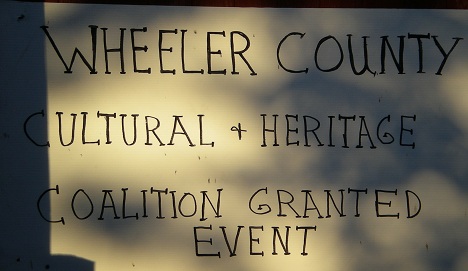 WHEELER COUNTY
CULTURAL + HERITAGE
COALITION GRANTED
EVENT